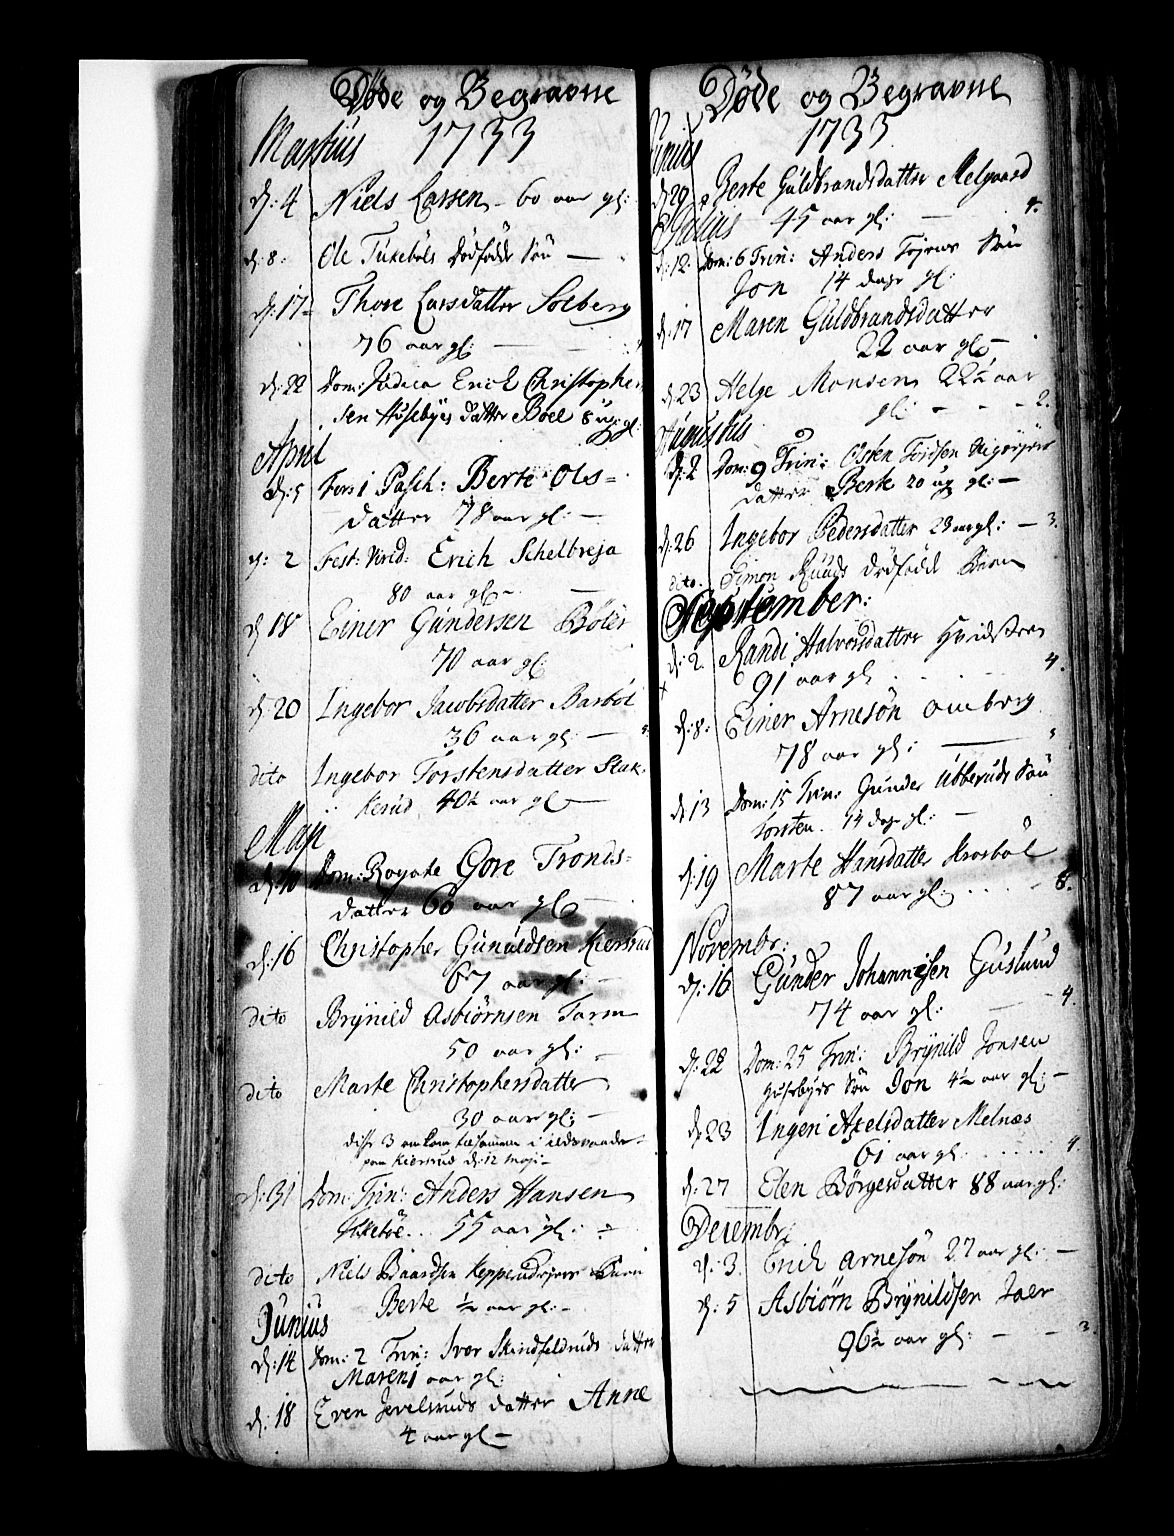 Døde og Begravne
Martius 1733
d: 4 Niels Larsen - 60 aar gl:
d: 8. Ole Tuxebøls Dødfødde Søn —
d: 17 - Thore Larsdatter Solberg
76 aar gl: —
d: 22 Dom: Judica Erich Christopher
sen Husebyes datter Boel 8 ug: gl:
April
d: 5 Fer: 1 Pasch: Berte Ols=
datter 78 aar gl: —
d: 2 Fest: Virid: Erich Schelbreja
80 aar gl -
d 18 Einer Gundersen Bøler
70 aar gl:
d: 20 Ingebor Jacobsdatter Barbøl
36 aar gl: —
dito Ingebor Torstensdatter Stak
kerud 40½ aar gl —
Maji
d: 10 Dom: Rogate Gore Tronds=
datter 66 aar gl —
d: 16 Christopher Gunuldsen Kiersrud
67 aar gl: —
dito Brynild Asbiørnsen Torm
50 aar gl: —
dito Marte Christophersdatter
30 aar gl: —
disse 3 omkom tilsammen i ildsvaade
paa Kiersrud d: 12 maji -
d: 31 Dom: Trin: Anders Hansen
55 aar gl:
dito Niels Baardsen Barn
Berte ½ aar gl: -
Junius
d: 14 Dom: 2 Trin: Iver Skindfeldruds datter
Maren 1 aar gl:
d: 18 Even Jevelsruds datter Anne
4 aar gl —
Døde og Begravne
1733
Junius
d: 29 Berte Guldbrandsdatter Melgaard
45 aar gl: — 4.
Julius
d: 12. Dom: 6 Trin: Anders Søn
Jon 14 dage gl:
d: 17 Maren Guldbrandsdatter
22 aar gl -
d: 23 Helge Monsen 22½ aar
gl: - - - 2.
Augustus
d: 2 Dom: 9 Trin: Østen Tordsen
datter Berte 20 ug gl: —
d: 26 Ingebor Pedersdatter 23 aar gl: — 3.
dito. Simon Ruuds dødfødde Barn
September:
d: 2 Randi Halvorsdatter Hvidsteen
91 aar gl 4.
d: 8: Einer Arnesøn Omberg
78 aar gl: —
d: 13 Dom: 15 Trin: Gunder Ubberuds Søn
Torsten. 14 dage gl: —
d: 19 Marte Hansdatter Krosbøl
87 aar gl: . . . - 8.
Novembr:
d: 16 Gunder Johannesen Guslund
74 aar gl: — 4.
d: 22 Dom: 25 Trin: Brynild Jonsen
Husebyes Søn Jon 4½ aar gl: —
d: 23 Ingeri Axelsdatter Melnæs
61 aar gl. . . . . . . 4.
d: 27 Elen Børgesdatter 88 aar gl:
Decembr:
d: 3. Erich Arnesøn 27 aar gl: —
d: 5 Asbiørn Brynildsen Joer
96½ aar gl: — - 3.